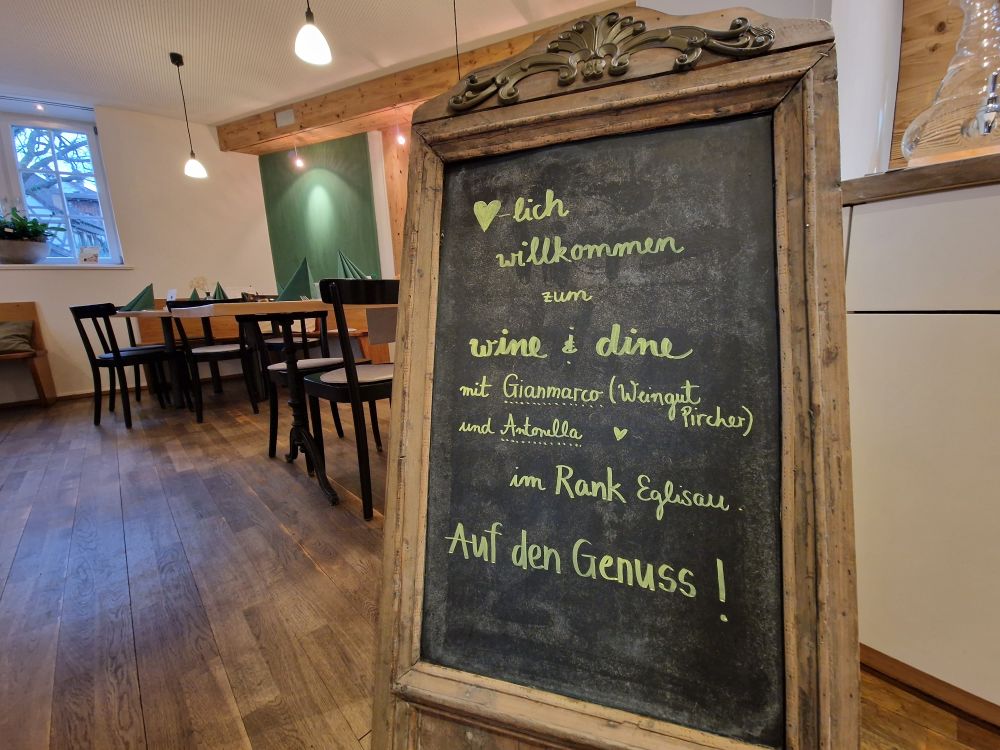 ♥-lich
willkommen
zum
wine & dine
mit Gianmarco (Weingut
Pircher)
und Antonella ♥
im Rank Eglisau.
Auf den Genuss!